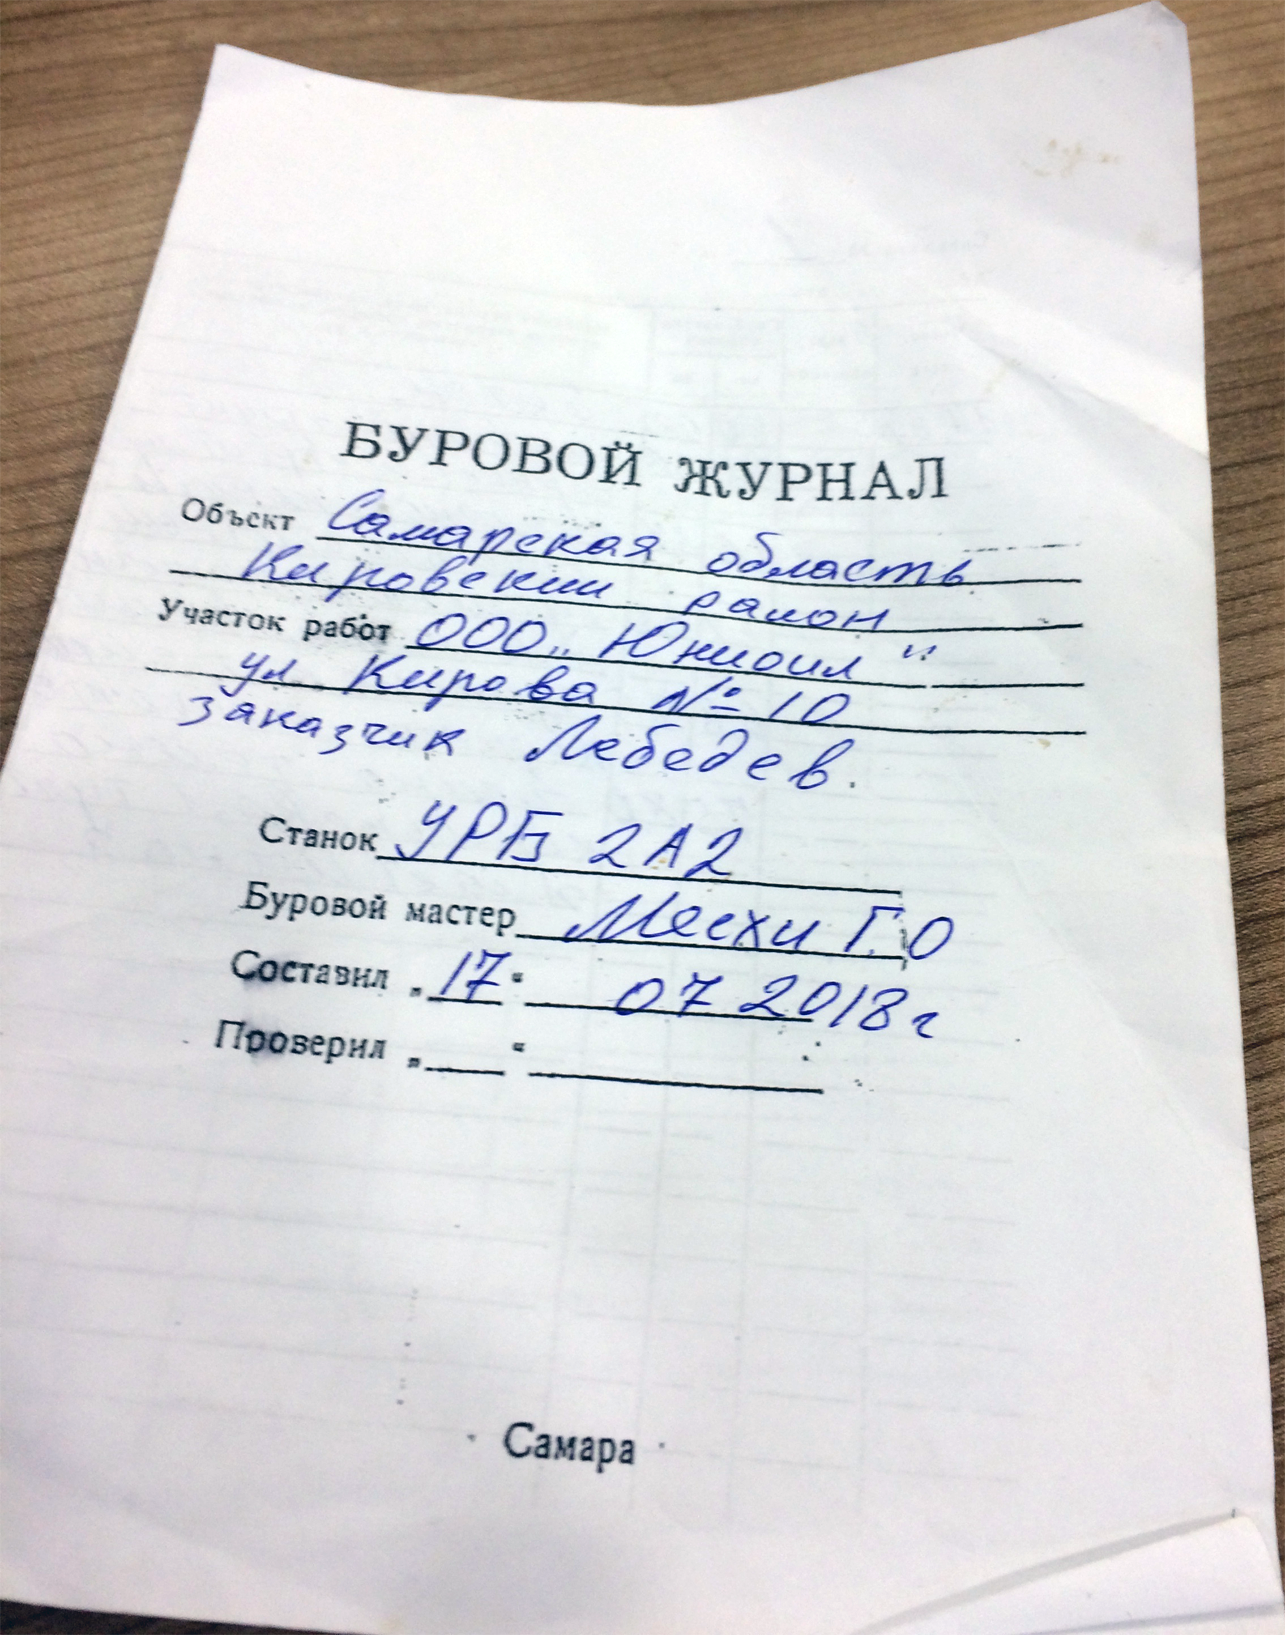 БУРОВОЙ ЖУРНАЛ
Объект Самарская область
Кировский район
Участок работ ООО „Юниоил"
ул Кирова № 10
Заказчик Лебедев.
Станок УРБ 2А2
Буровой мастер Месхи Г.О
Составил „17“ 07 2018г
Проверил „ “
Самара